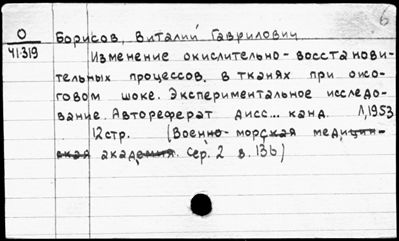 6
О
41319
Борисов, Виталий Гаврилович
Изменение окислительно-восстанови-
тельных процессов в тканях при ожо-
говом шоке. Экспериментальное исследо-
вание. Автореферат дисс... канд. Л, 1953
12стр. (Военно-морская медицин-
ская академия. Сер. 2 в. 136)